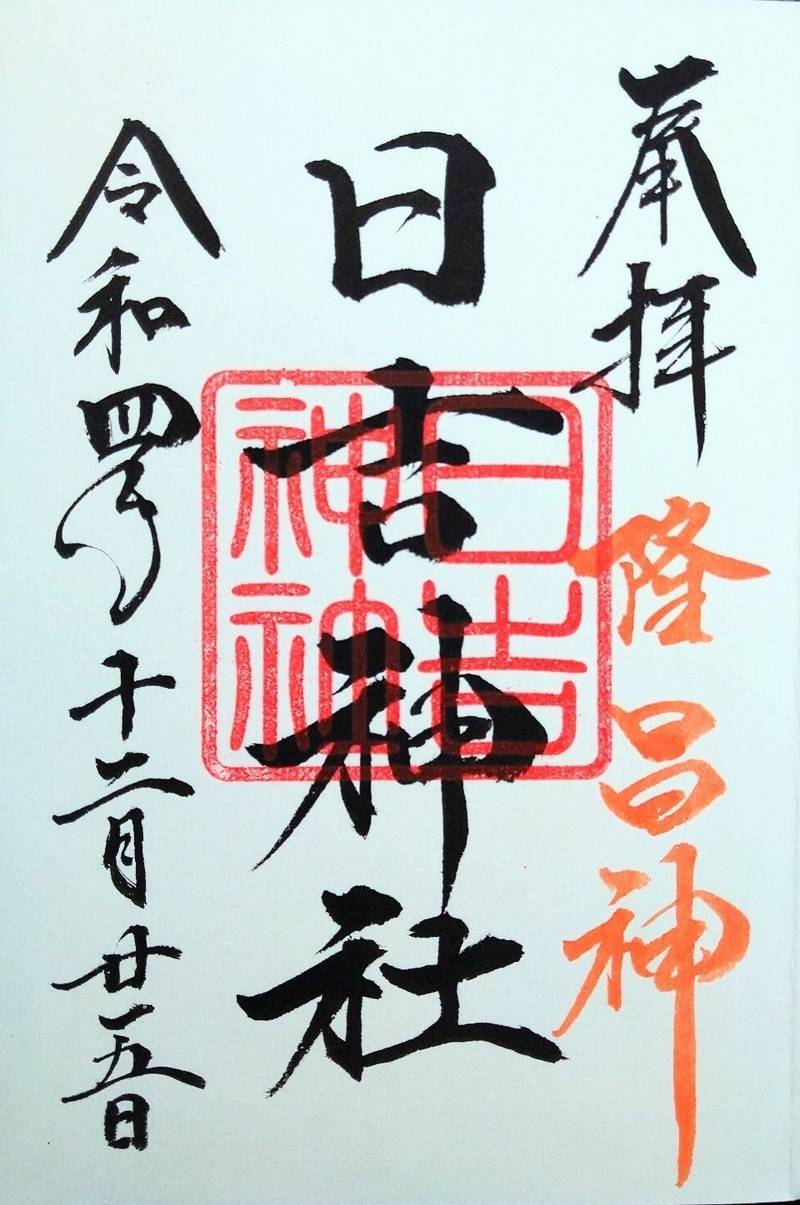 奉拝
隆昌神
日吉神社
日吉
令和四年十二月廿五日